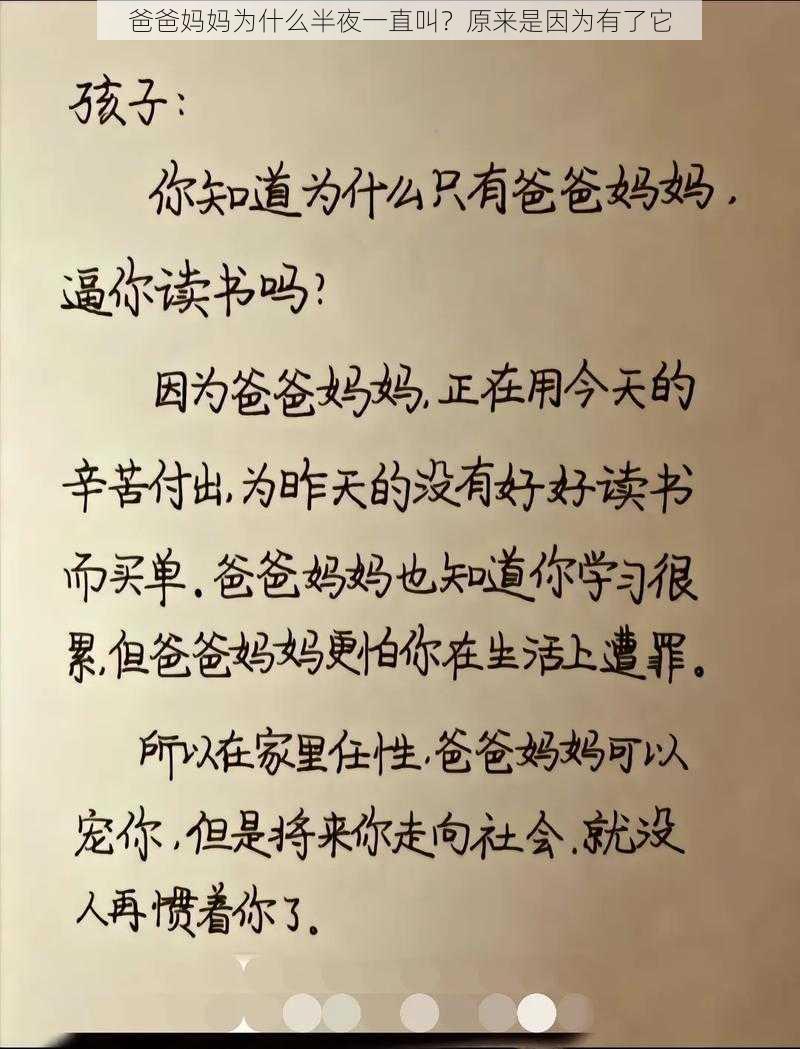 爸爸妈妈为什么半夜一直叫？原来是因为有了它
孩子：
你知道为什么只有爸爸妈妈，
逼你读书吗？
因为爸爸妈妈，正在用今天的
辛苦付出，为昨天的没有好好读书
而买单。爸爸妈妈也知道你学习很
累，但爸爸妈妈更怕你在生活上遭罪。
所以在家里任性，爸爸妈妈可以
宠你，但是将来你走向社会，就没
人再惯着你了。